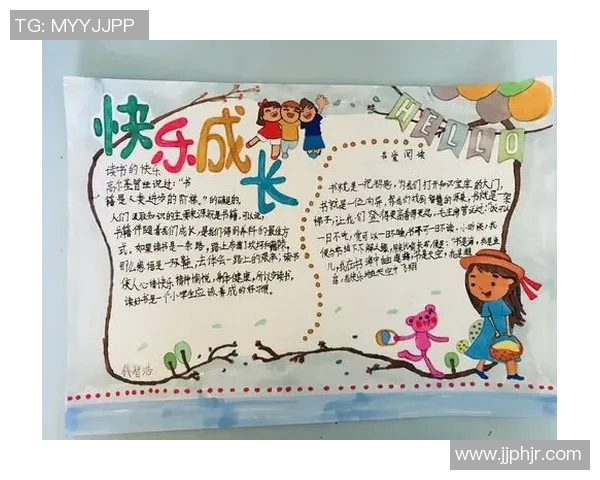 TG: MYYJJPP
快乐成长
HELLO
读书的快乐
高尔基曾经说过："书
籍是人类进步的阶梯。"的确是的,
人们汲取知识的主要来源就是书籍,可以说,
书籍伴随着我们成长,是我们得到养料的最佳方
式。如果读书是一条路,路上布满了坎坷和崎岖,
那么
去体会一路上的艰辛,读书
使人心情快乐,精神愉悦,身体健康,所以多读书,
读好书是一个小学生应该养成的好习惯。
钱智浩
书爱阅读
书就是一把钥匙,为我们打开知识宝库的大门,
书就是一位向导,带我们找到智慧的源泉,书就是一架
梯子,让我们登得更高看得更远,毛主席曾说过:"饭可以
一日不吃,觉可以一日不睡,书不可一日不读,小时候,我
书是海,我是鱼
儿,我在书海中
书是天空,我是
鸟,我快乐地在天空中飞翔
www.jjphjr.com